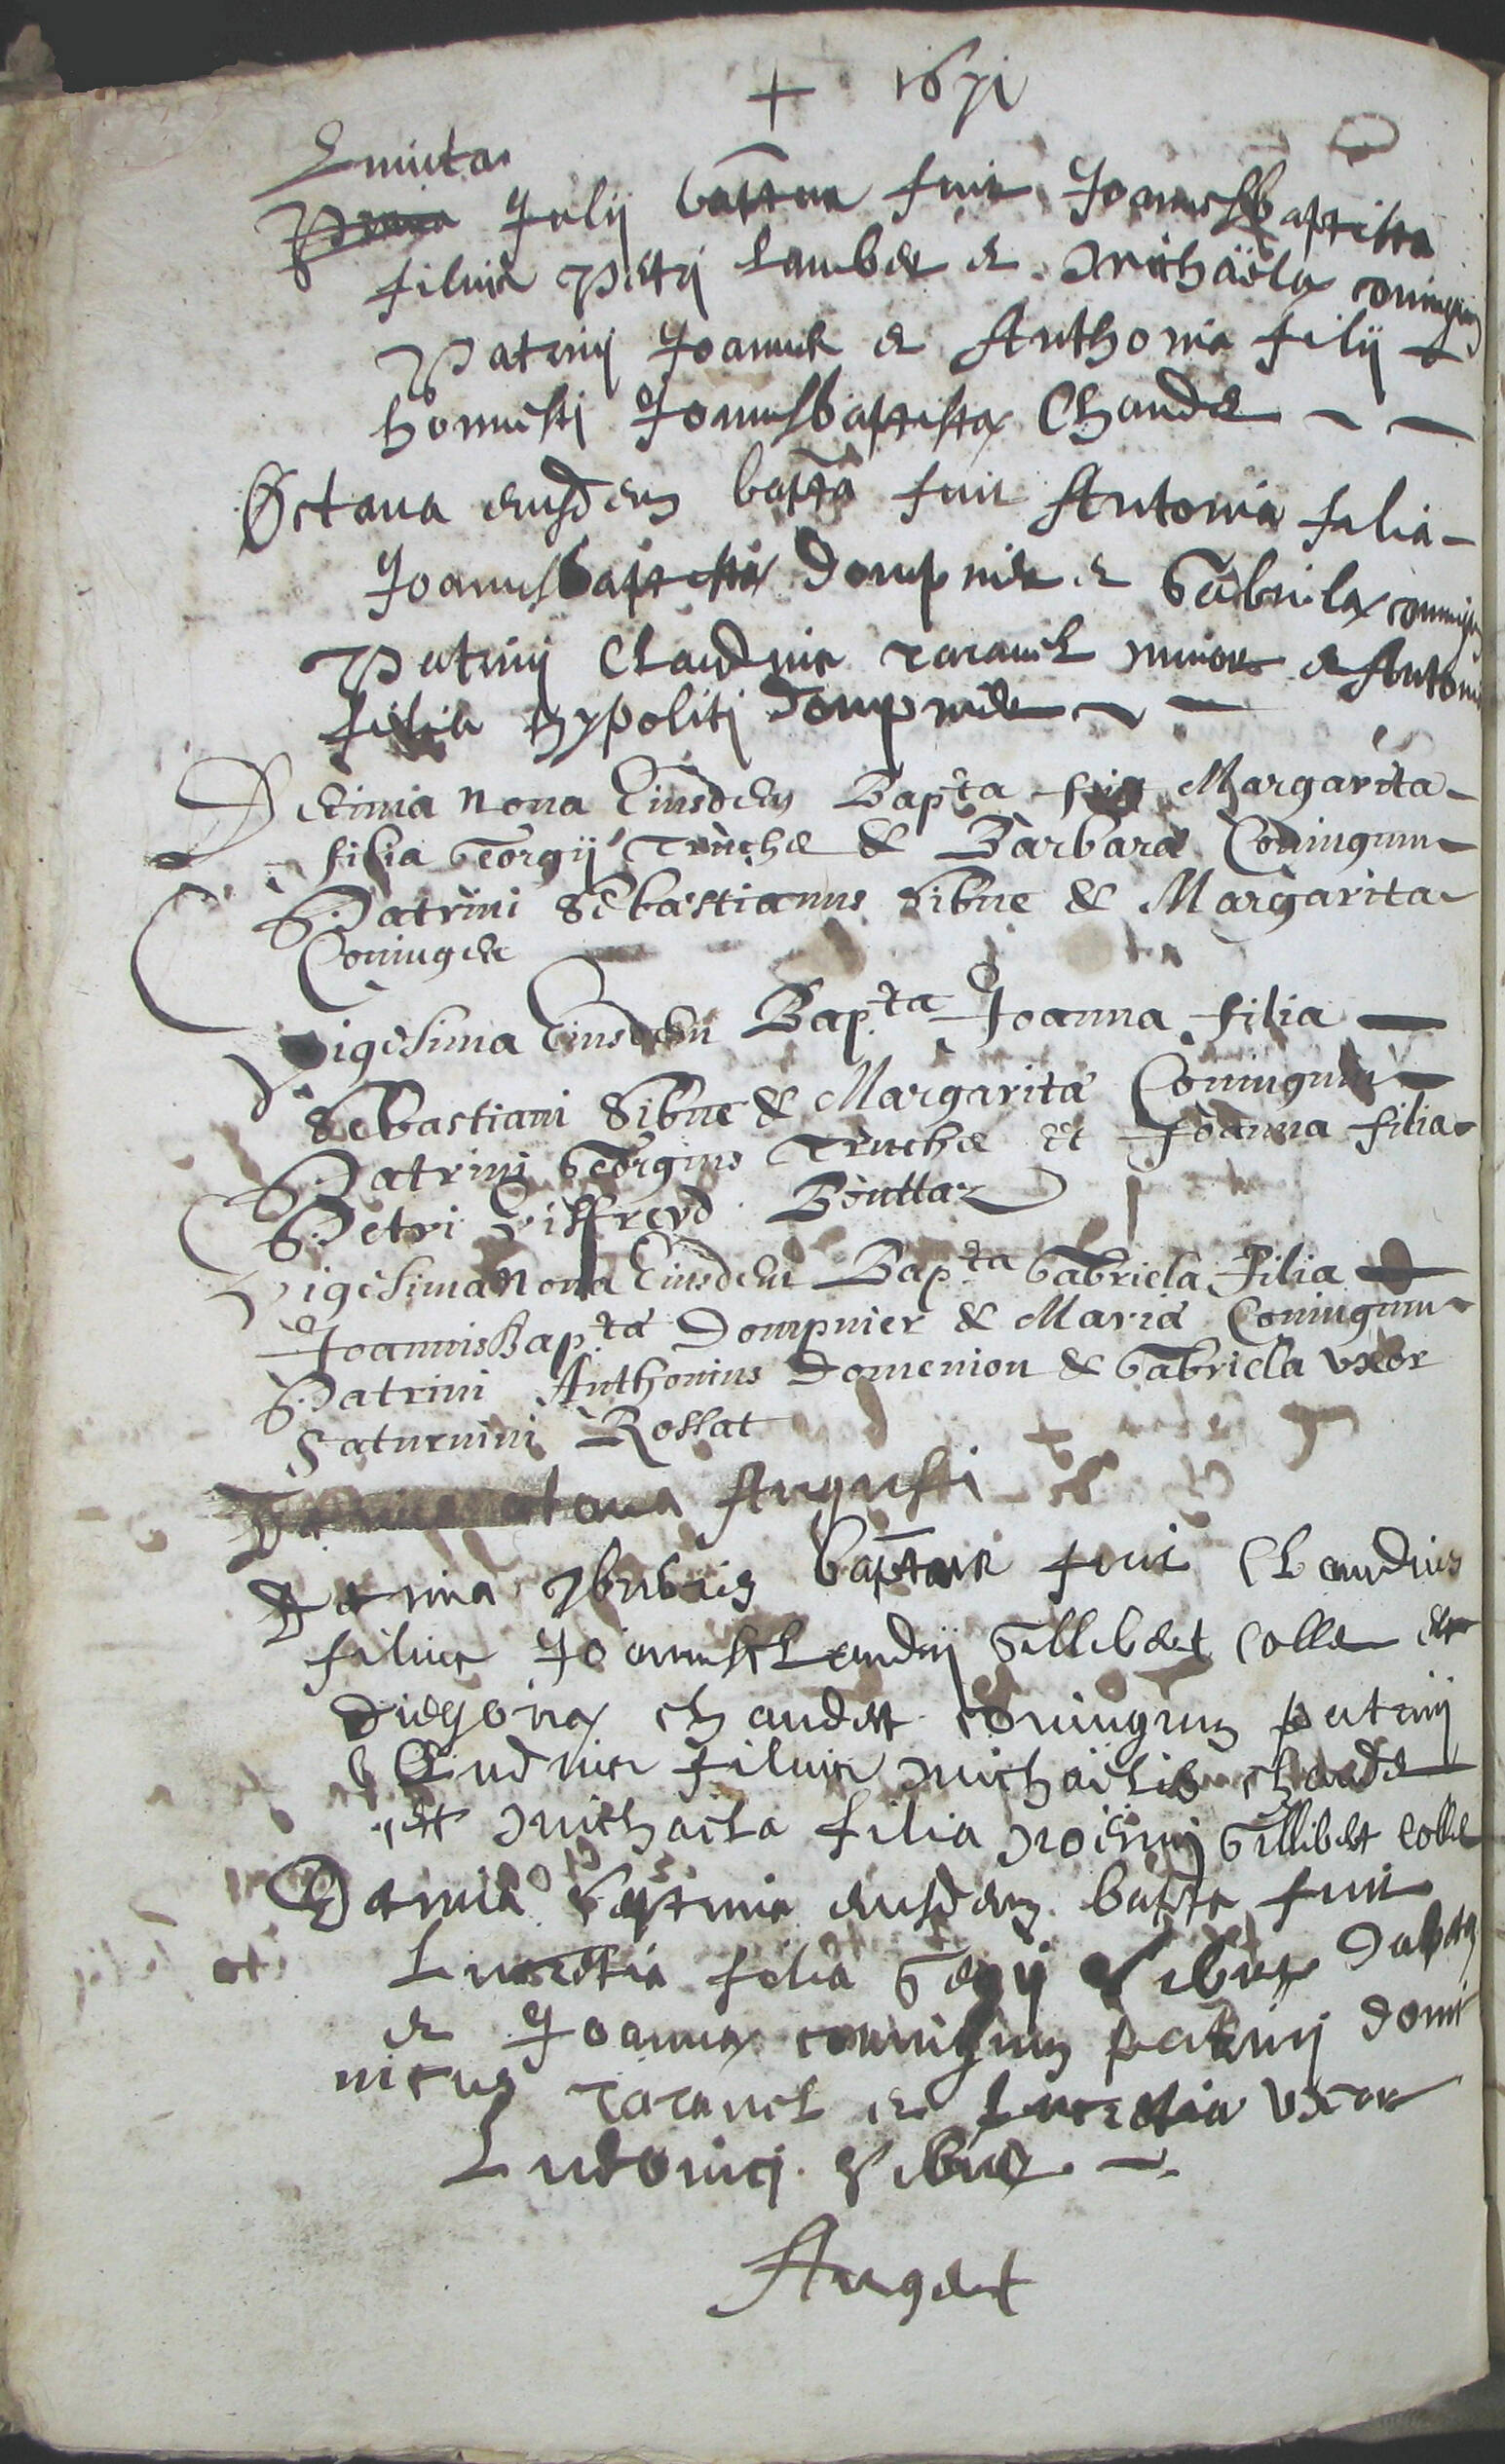 + 1671
Quinta
Prima Julij baptus fuit Joannesbaptista
filius Petri Lambert et Michaëlæ coniugum
Patrinj Joannes et Anthonia filij
honnesti Joannisbaptistæ Chaudet
Octaua eiusdem bapta fuit Antonia filia
Joannisbaptistæ Dompnier et Gabrielæ coniugum
Patrinj Claudius Taranel minor et Antonia
filia Hypoliti Dompnier
Decima nona Eiusdem Bapta fuit Margarita
filia Georgij Truche & Barbaræ Coniugum
Patrini Sebastianus Sibue & Margarita
Coniuges
Vigesima Eiusdem Bapta Joanna filia
Sebastiani Sibue & Margaritæ Coniugum
Patrini Georgius Truche et Joanna filia
Petri Viffreyd Boutta
Vigesima Nona Eiusdem Bapta Gabriela Filia
Joannis Baptæ Dompnier & Mariæ Coniugum
Patrini Anthonius Domenion & Gabriela vxor
Saturnini Rossat
Augusti
Decima 7bris baptus fuit Claudius
filius Joannisclaudij Gillibert Collet et
chaudet coniugum patrinj
Claudius filius Michaëlis chaudet
et Michaela filia Gillibert Collet
Decima septima eiusdem bapta fuit
Lucretia filia Sibue
et Joannæ coniugum patrinj Domi
nicus Taranel et Lucretia vxor
Ludouicj Sibue
Auget